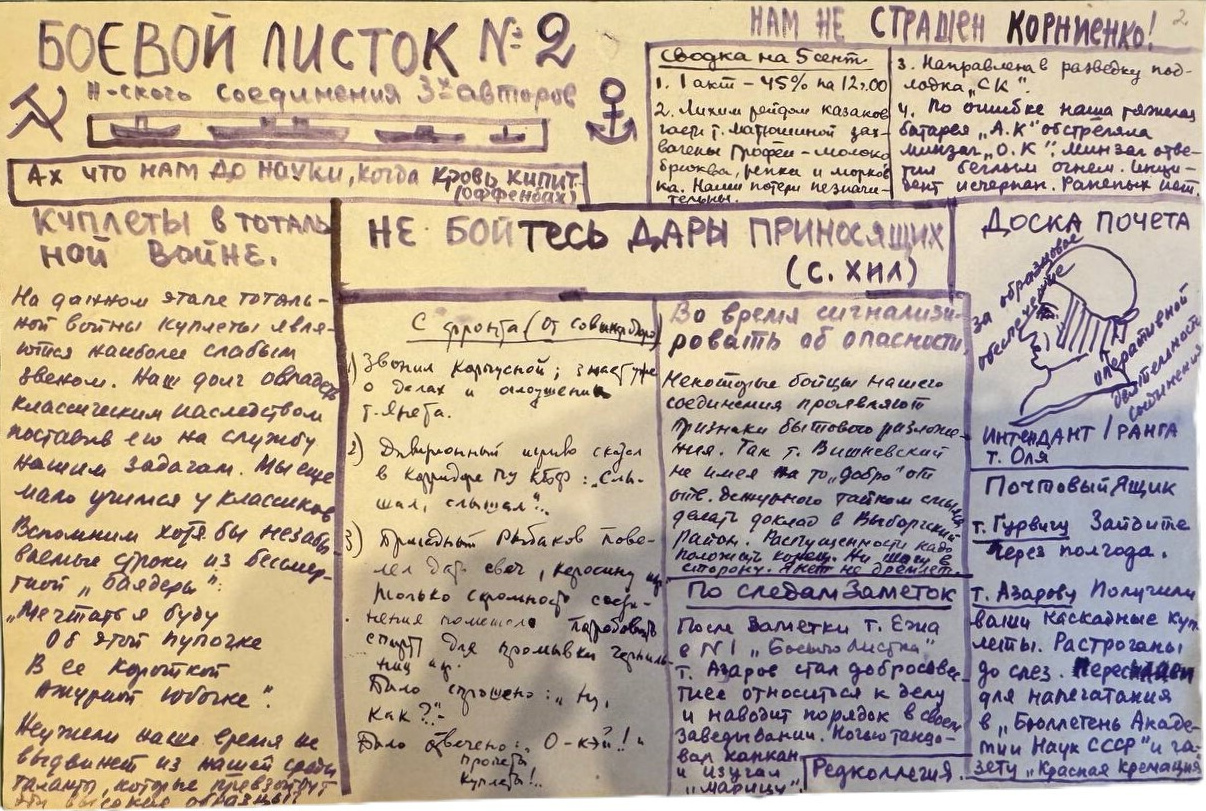 БОЕВОЙ ЛИСТОК №2
Н-ского соединения 3х авторов
Ах что нам до науки, когда кровь кипит
(Оффенбах)
НАМ НЕ СТРАШЕН КОРНИЕНКО!
2
Сводка на 5 сент.
1. 1 акт – 45% на 12.00
2. Лихим рейдом казаков
части т. Матюшиной зах-
вачены трофеи – молоко
брюква, репка и морков
ка. Наши потери незначи-
тельны.
3. Направлена в разведку под-
лодка „СК".
4. По ошибке наша тяжелая
батарея „А.К" обстреляла
минзаг „О.К". Минзаг отве-
тил беглым огнем. Инци-
дент исчерпан. Раненых нет.
КУПЛЕТЫ В ТОТАЛЬ
НОЙ ВОЙНЕ.
На данном этапе тоталь-
ной войны куплеты явля-
ются наиболее слабым
звеном. Наш долг овладеть
классическим наследством
поставив его на службу
нашим задачам. Мы еще
мало учимся у классиков
Вспомним хотя бы незабы
ваемые строки из бессмер-
тной „Баядеры":
„Мечтать я буду
Об этой пупочке
В ее короткой
Ажурной юбочке".
Неужели наше время не
выдвинет из нашей среды
таланты, которые превзойдут
эти высокие образцы!
НЕ БОЙТЕСЬ ДАРЫ ПРИНОСЯЩИХ
(С. ХИЛ)
С фронта (От Совинформбюро)
1) Звонил Корпусной; знает уже
о делах и
т. Янета.
2) Дивизионный игриво сказал
в коридоре ПУ КБФ: „Слы-
шал, слышал"..
3) Бригадный Рыбаков пове-
лел дать свеч, керосину и пр.
Только скромность соеди-
нения помешала потребовать
спирт для промывки черниль-
ниц и пр.
Было спрошено: „Ну,
как?"-
Было отвечено: „О-кэй!! и
прочёл
куплеты!..
Во время сигнализи-
ровать об опасности.
Некоторые бойцы нашего
соединения проявляют
признаки бытового разложе-
ния. Так т. Вишневский
не имея на то „добро" от
отв. дежурного тайком
делать доклад в Выборгский
район. Распущенности надо
положить конец. Ни шагу в
сторону. Янет не дремлет.
По следам Заметок
После Заметки т. Ежа
в №1 „Боевого Листка"
т. Азаров стал добросовес-
тнее относиться к делу
и наводит порядок в своем
заведывании. Ночью танцо-
вал канкан
и изучал
„Марицу".
Редколлегия.
ДОСКА ПОЧЕТА
За образцовое
обеспечение
оперативной
деятельности
соединения
ИНТЕНДАНТ 1 РАНГА
т. Оля
Почтовый Ящик
т. Гурвичу Зайдите
через полгода.
т. Азарову Получили
ваши каскадные куп
леты. Растроганы
до слез. Пересылаем
для напечатания
в „Бюллетень Акаде-
мии Наук СССР" и га-
зету „Красная Кремация